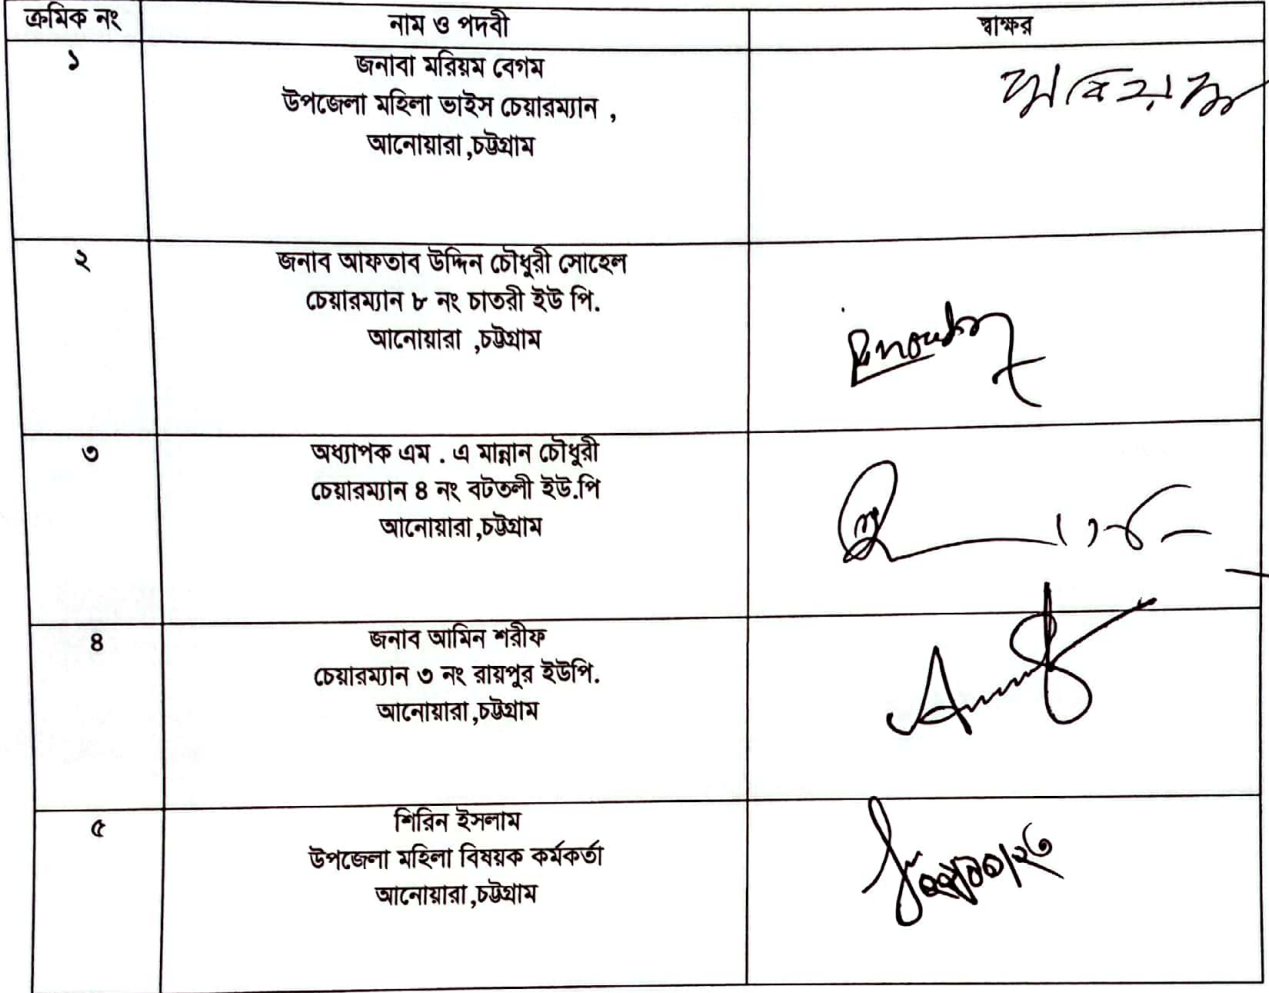 ক্রমিক নং নাম ও পদবী স্বাক্ষর
১ জনাবা মরিয়ম বেগম
উপজেলা মহিলা ভাইস চেয়ারম্যান ,
আনোয়ারা ,চট্টগ্রাম
২ জনাব আফতাব উদ্দিন চৌধুরী সোহেল
চেয়ারম্যান ৮ নং চাতরী ইউ পি.
আনোয়ারা ,চট্টগ্রাম
৩ অধ্যাপক এম . এ মান্নান চৌধুরী
চেয়ারম্যান ৪ নং বটতলী ইউ.পি
আনোয়ারা ,চট্টগ্রাম
৪ জনাব আমিন শরীফ
চেয়ারম্যান ৩ নং রায়পুর ইউপি.
আনোয়ারা ,চট্টগ্রাম
৫ শিরিন ইসলাম
উপজেলা মহিলা বিষয়ক কর্মকর্তা
আনোয়ারা ,চট্টগ্রাম